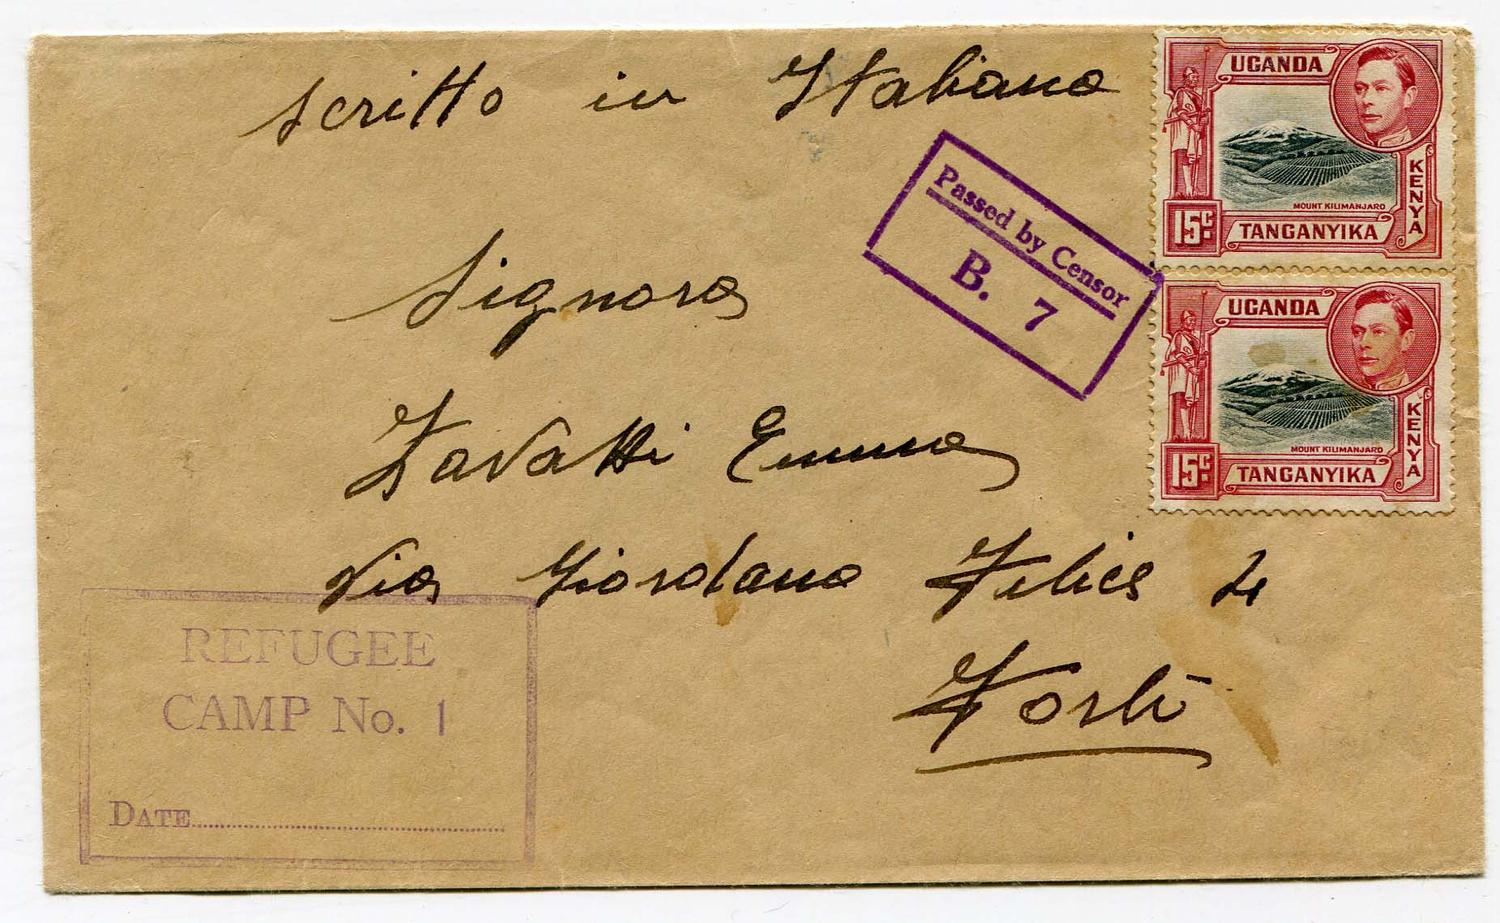 scritto in Italiano
UGANDA
KENYA
MOUNT KILIMANJARO
15c
TANGANYIKA
Passed by Censor
B. 7
Signora
UGANDA
KENYA
MOUNT KILIMANJARO
15c
TANGANYIKA
Zavatti Emma
via Giordano Felice 4
Forlì
REFUGEE
CAMP No. 1
DATE